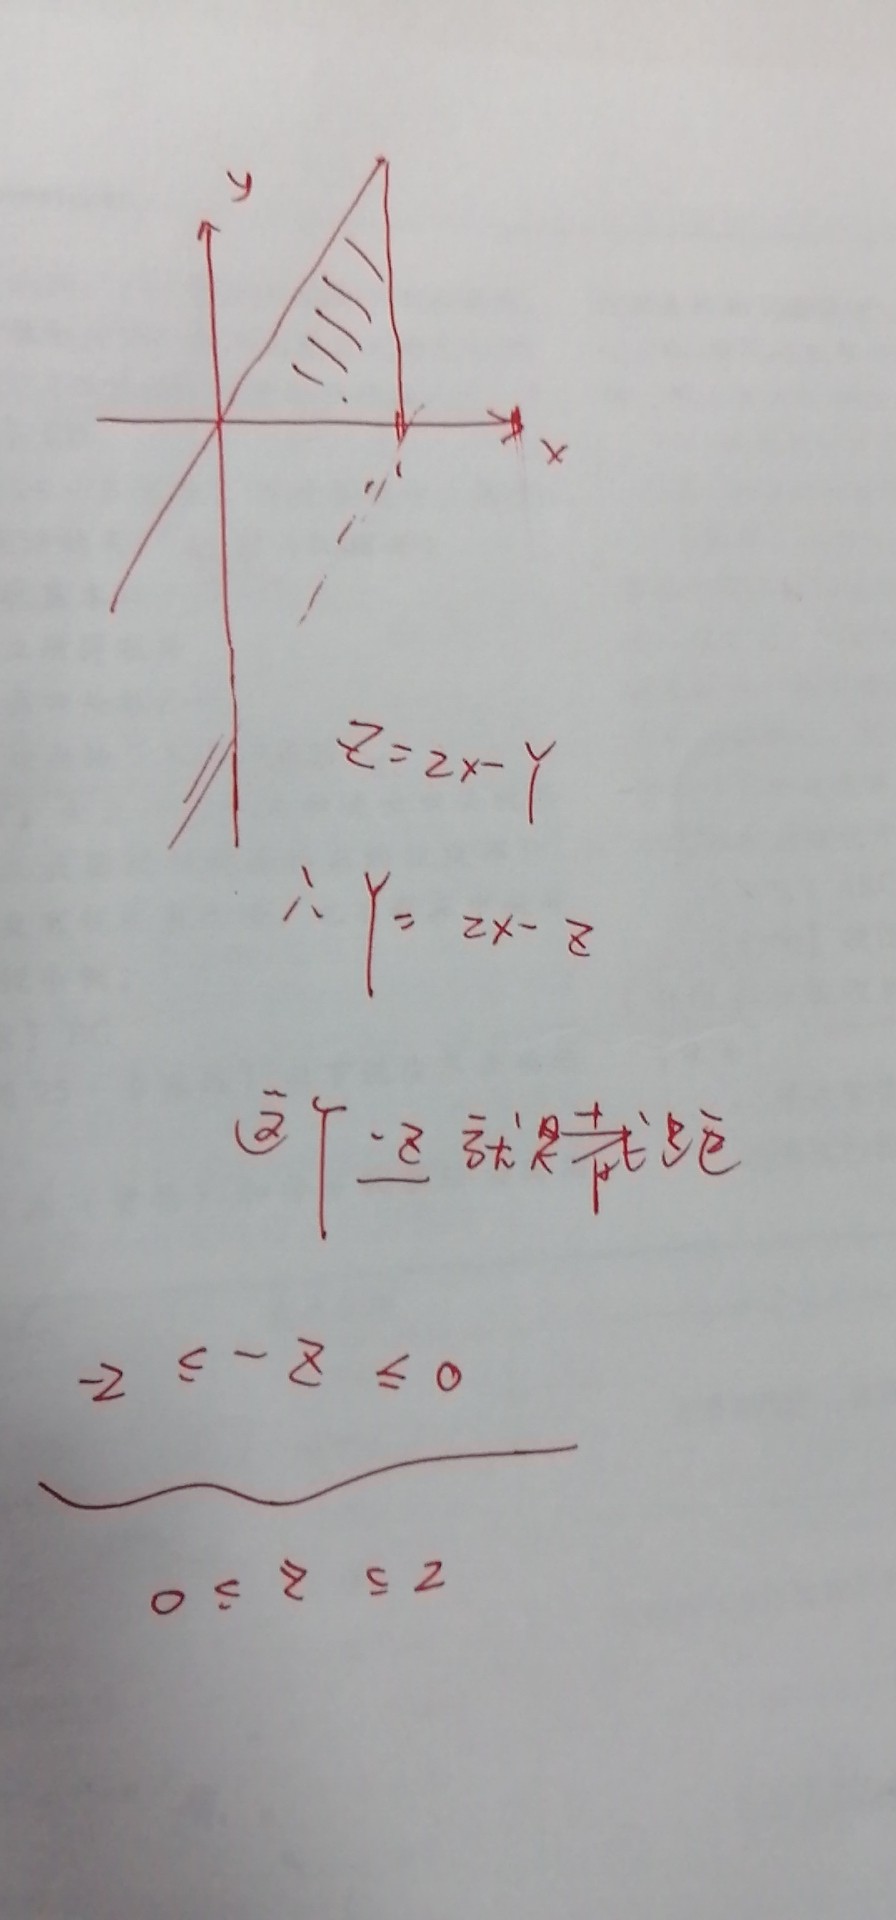 y
x
Z=2x-Y
∴ Y= 2x-z
-z 就是截距
-2 ≤ -z ≤ 0
0 ≤ z ≤ 2